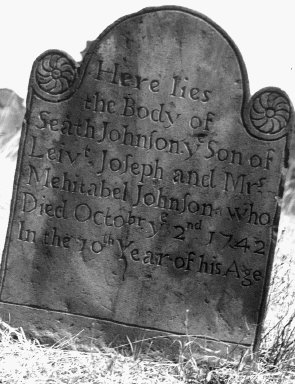 Here lies
the Body of
Seath Johnson yᵉ Son of
Leivᵗ. Joseph and Mʳˢ.
Mehitabel Johnson who
Died Octobʳ yᵉ 2ⁿᵈ 1742
In the 10ᵗʰ Year of his Age